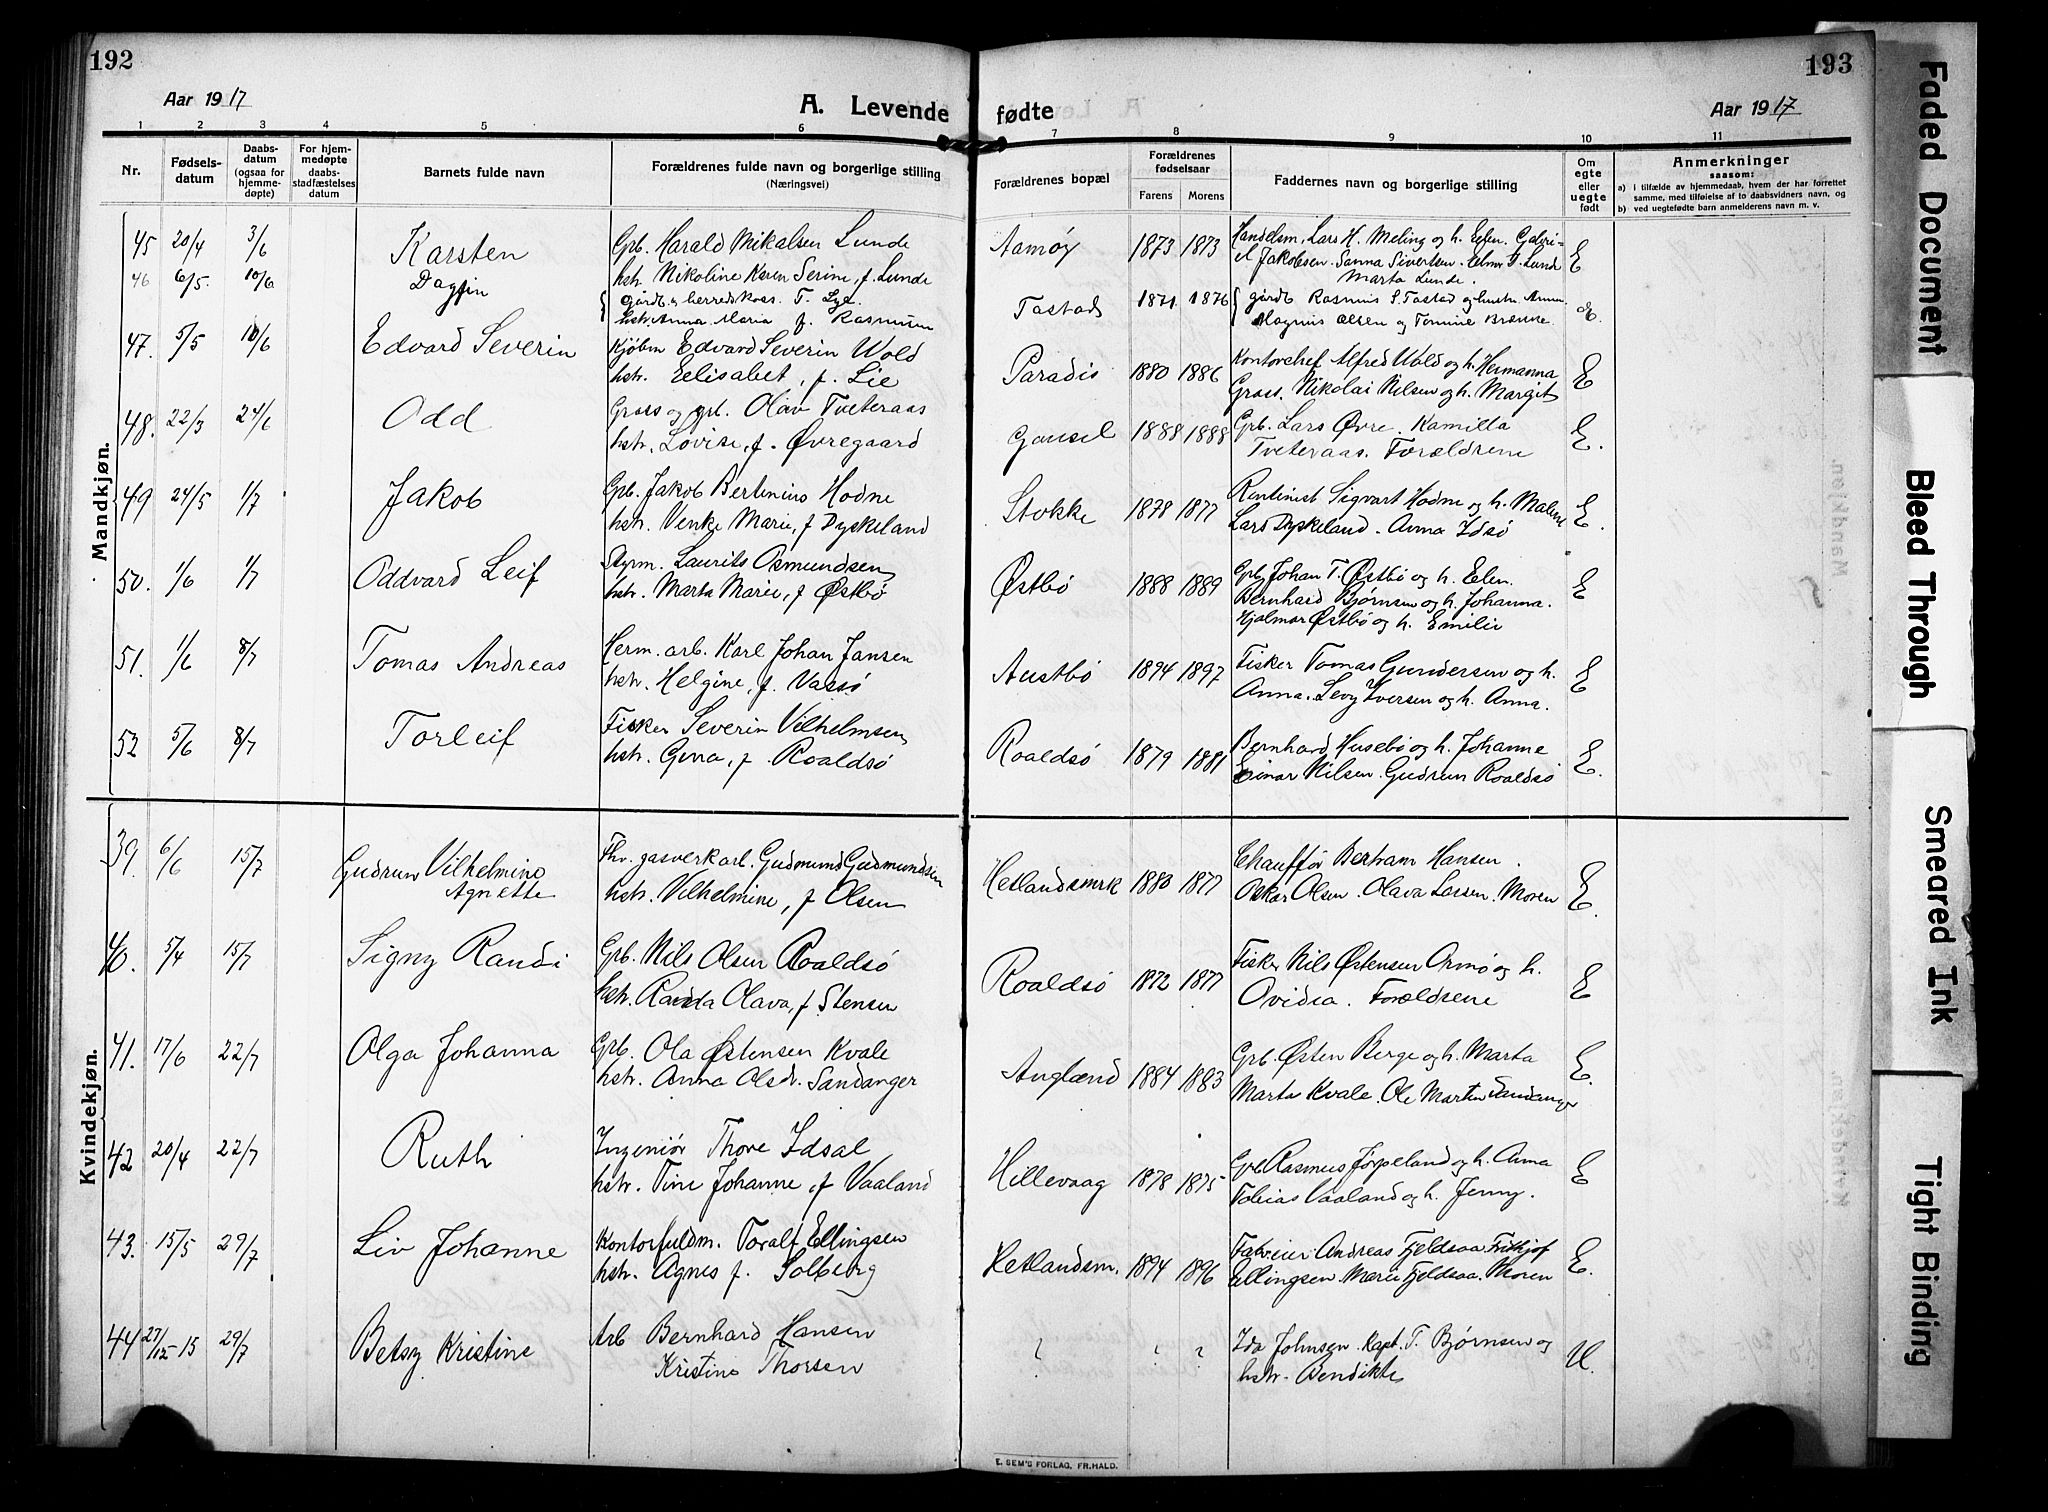 192
193
Aar 1917
A. Levende
fødte
Aar 1917
1 2 3 4 5 6 7 8 9 10 11
Nr.
Fødsels-
datum
Daabs-
datum
(ogsaa for
hjemme-
døpte)
For hjem-
medøpte
daabs-
stadfæstelses
datum
Barnets fulde navn
Forældrenes fulde navn og borgerlige stilling
(Næringsvei)
Forældrenes bopæl
Forældrenes
fødselsaar
Farens Morens
Faddernes navn og borgerlige stilling
Om
egte
eller
uegte
født
Anmerkninger
saasom:
a) i tilfælde av hjemmedaab, hvem der har forrettet
samme, med tilføielse af to daabsvidners navn, og
b) ved uegtefødte barn anmelderens navn m. v.
Mandkjøn.
45 20/4 3/6 Karsten Grb. Harald Mikalsen Lunde Aamøy 1873 1873 Handelsm. Lars H. Meling og h. Elen. Gabri-
hstr. Nikoline Karen Serine, f. Lunde el Jakobsen. Sanna Sivertsen. Elmr G. Lunde E
Marta Lunde.
46 6/5. 10/6 Dagfin Gårdb. & herredskass. T. Lye. Tastad 1871 1876 gårdb. Rasmus S. Tastad og hustr. Anna.
hstr. Anna Maria f. Rasmussen Magnus Olsen og Tomine Brænne. E.
47. 5/5 10/6 Edvard Severin Kjøbm Edvard Severin Wold Paradis 1880 1886 Kontorchef Alfred Wold og h. Hermanna E
hstr. Eelisabet, f. Lie Gross. Nikolai Nilsen og h. Margit
48. 22/3 24/6 Odd Gross og grb. Olav Tveteraas Gausel 1888 1888 Grb. Lars Øvre. Kamilla E.
hstr. Lovise, f. Øvregaard Tveteraas. Forældrene
49 24/5 1/7 Jakob Grb. Jakob Bertinius Hodne Stokke 1878 1877 Rentinist Sigvart Hodne og h. Malene E.
hstr. Venke Marie, f Dyskeland Lars Dyskeland. Anna Idsø
50. 1/6 1/7 Oddvard Leif Styrm. Laurits Osmundsen Østbø 1888 1889 Grb Johan T. Østbø og h. Elen. E
hstr. Marta Marie, f Østbø Bernhard Bjørnsen og h. Johanna.
Hjalmar Østbø og h. Emilie
51. 1/6 8/7 Tomas Andreas Herm. arb. Karl Johan Jansen Austbø 1894 1897 Fisker Tomas Gundersen og h. E
hstr. Helgine, f. Vassø Anna. Levy Iversen og h. Anna.
52 5/6 8/7 Torleif Fisker Severin Vilhelmsen Roaldsø 1879 1881 Bernhard Husebø og h. Johanne E.
hstr. Gina, f. Roaldsø Einar Nilsen. Gudrun Roaldsø
Kvindekjøn.
39. 6/6 15/7 Gudrun Vilhelmine Fhv. gasverkarb. Gudmund Gudmundsen Hetlandsmrk 1880 1877 Chauffør Bertram Hansen.
Agnette hstr. Vilhelmine, f Olsen Oskar Olsen. Olava Larsen. Moren E.
40. 5/4 15/7 Signy Randi Grb. Nils Olsen Roaldsø Roaldsø 1872 1877 Fisker Nils Østensen Ormø og h. E
hstr. Randa Olava, f Stensen Ovidia. Forældrene
41. 17/6 22/7 Olga Johanna Grb. Ola Østensen Kvale Augland 1884 1883 Grb. Østen Berge og h. Marta E.
hstr. Anna Olsdr. Sandanger Marta Kvale. Ole Martin Sandanger
42 20/4 22/7 Ruth Ingeniør Thore Idsal Hillevaag 1878 1875 Grb Rasmus Jørpeland og h. Anna E
hstr. Tine Johanne, f Vaaland Tobias Vaaland og h. Jenny.
43. 15/5 29/7 Liv Johanne Kontorfuldm. Toralf Ellingsen Hetlandsm. 1894 1896 Fabreier Andreas Fjeldsaa. Fridtjof E.
hstr. Agnes f. Solberg Ellingsen. Marie Fjeldsaa. Moren
44 27/12-15 29/7 Betsy Kristine Arb Bernhard Hansen ? ? ? Ida Johnsen. Kapt. T. Bjørnsen og U.
Kristine Thorsen hstr. Bendikte
E. SEM'S FORLAG, FR.HALD.
Faded Document
Bleed Through
Smeared Ink
Tight Binding